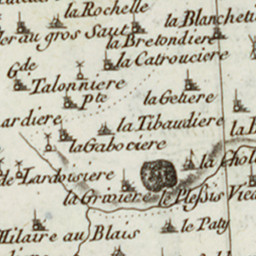 la Rochelle
la Blancheti
ler au gros Saut
la Bretondiere
la Catrouciere
Gde
Talonniere
Pte
la Geliere
ardiere
la Tibaudiere
la B
la Gabociere
la Chol
de Lardoisiere
la Griviere
le Plessis Vieu
le Paty
Hilaire au Blais